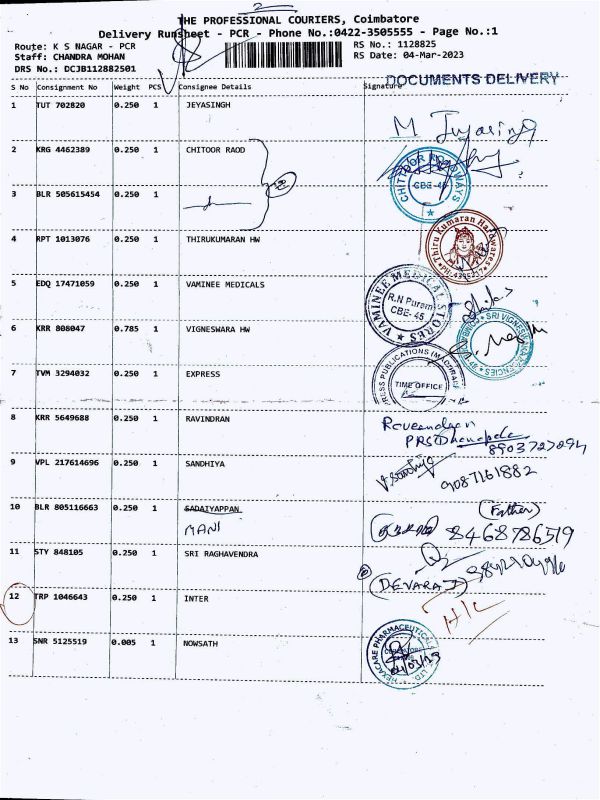 2
THE PROFESSIONAL COURIERS, Coimbatore
Delivery Runsheet - PCR - Phone No.:0422-3505555 - Page No.:1
Route: K S NAGAR - PCR RS No.: 1128825
Staff: CHANDRA MOHAN RS Date: 04-Mar-2023
DRS No.: DCJB112882501
DOCUMENTS DELIVERY
S No Consignment No Weight PCS Consignee Details Signature
1 TUT 702820 0.250 1 JEYASINGH
M Jeyasing
2 KRG 4462389 0.250 1 CHITOOR RAOD
CHITOOR ROADWAYS CBE-45
3 BLR 505615454 0.250 1
4 RPT 1013076 0.250 1 THIRUKUMARAN HW
Thiru Kumaran Hardwares
5 EDQ 17471059 0.250 1 VAMINEE MEDICALS
VAMINEE MEDICAL STORES R.N Puram CBE-45
6 KRR 808047 0.785 1 VIGNESWARA HW
SRI VIGNESWARA AGENCIES
7 TVM 3294032 0.250 1 EXPRESS
EXPRESS PUBLICATIONS (MADURAI) TIME OFFICE
8 KRR 5649688 0.250 1 RAVINDRAN
9 VPL 217614696 0.250 1 SANDHIYA
9087161882
10 BLR 805116663 0.250 1 SADAIYAPPAN
MANI
(Father)
8468786519
11 STY 848105 0.250 1 SRI RAGHAVENDRA
(DEVARAJ)
12 TRP 1046643 0.250 1 INTER
H/c
13 SNR 5125519 0.005 1 NOWSATH
HEXACARE PHARMACEUTICAL